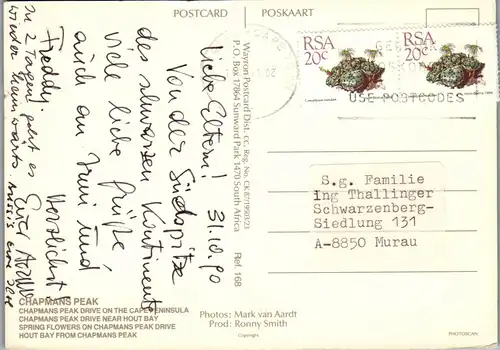 POSTCARD POSKAART
Liebe Eltern! 31.10.90
Von der Südspitze
des schwarzen Kontinents
viele liebe Grüße,
auch an und
Freddy. Herzlichst
In 2 Tagen geht es Euer
wieder heimwärts
Wayron Postcard Dist. cc. Reg. No. CK 87/19503/23
P.O. Box 17864 Sunward Park 1470 South Africa Ref. 168
RSA
20c
RSA
20c
USE POSTCODES
S.g. Familie
ing Thallinger
Schwarzenberg-
Siedlung 131
A-8850 Murau
CHAPMANS PEAK
CHAPMANS PEAK DRIVE ON THE CAPE PENINSULA
CHAPMANS PEAK DRIVE NEAR HOUT BAY
SPRING FLOWERS ON CHAPMANS PEAK DRIVE
HOUT BAY FROM CHAPMANS PEAK
Photos: Mark van Aardt
Prod: Ronny Smith
Copyright.
PHOTOSCAN